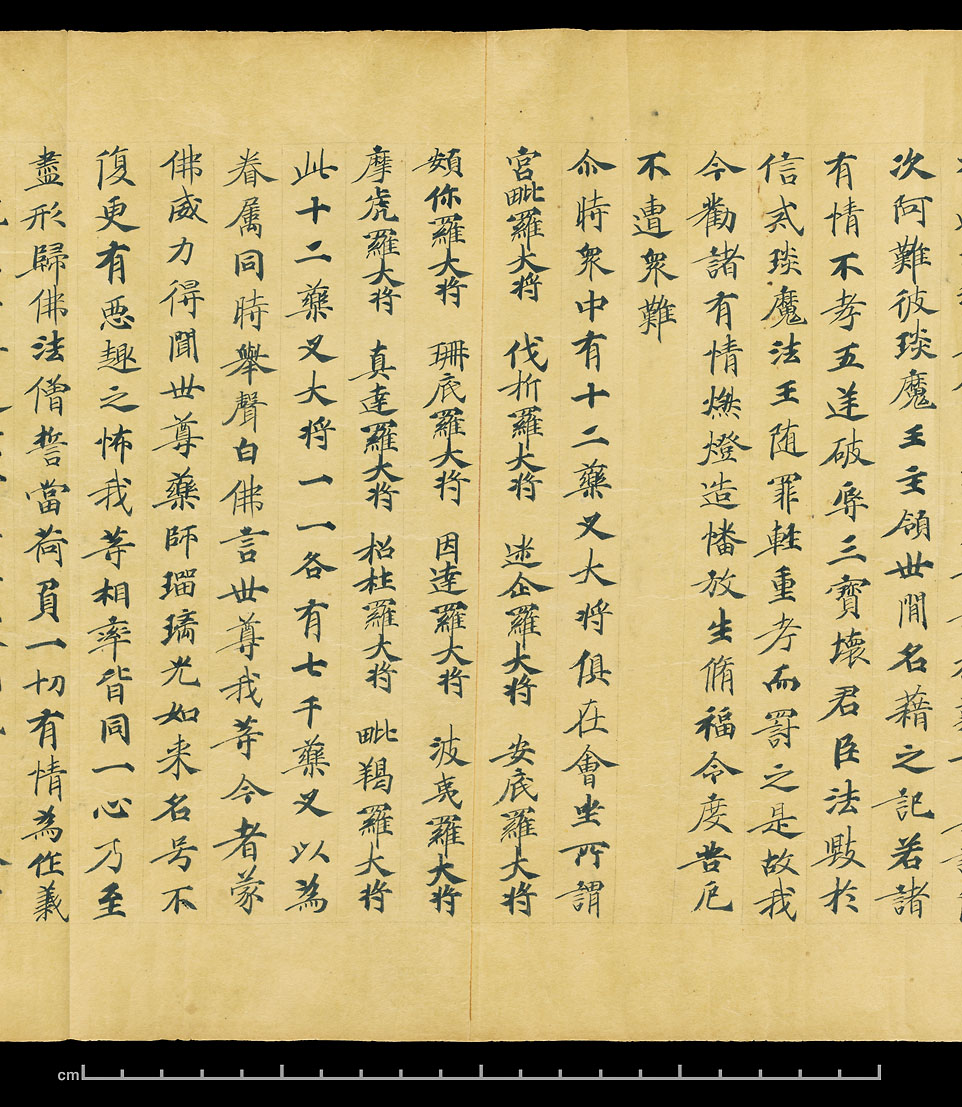 次阿難彼琰魔王主領世間名藉之記若諸
有情不孝五逆破辱三寶壞君臣法毀於
信戒琰魔法王随罪軽重考而罰之是故我
今勸諸有情燃燈造幡放生脩福令度苦厄
不遭衆難
尒時衆中有十二藥叉大将俱在會坐所謂
宮毗羅大将 伐折羅大将 迷企羅大将 安底羅大将
頞你羅大将 珊底羅大将 因達羅大将 波夷羅大将
摩虎羅大将 真達羅大将 招杜羅大将 毗羯羅大将
此十二藥叉大将一一各有七千藥叉以為
眷属同時舉聲白佛言世尊我等今者蒙
佛威力得聞世尊藥師瑠璃光如来名号不
復更有惡趣之怖我等相率皆同一心乃至
盡形歸佛法僧誓當荷負一切有情為作義